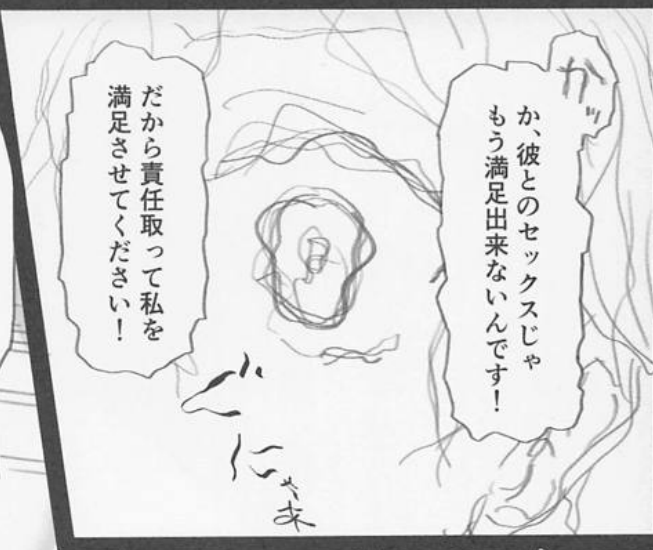 か、彼とのセックスじゃ
もう満足出来ないんです！
だから責任取って私を
満足させてください！
ぐにゃあ